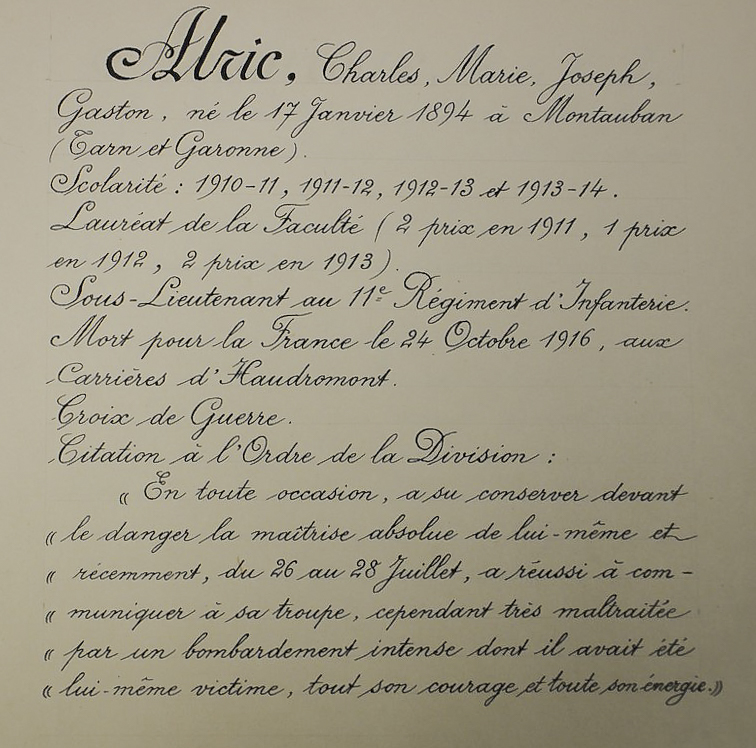 Alric, Charles, Marie, Joseph,
Gaston, né le 17 Janvier 1894 à Montauban
(Tarn et Garonne).
Scolarité : 1910-11, 1911-12, 1912-13 et 1913-14.
Lauréat de la Faculté ( 2 prix en 1911, 1 prix
en 1912, 2 prix en 1913).
Sous-Lieutenant au 11e Régiment d'Infanterie.
Mort pour la France le 24 Octobre 1916, aux
Carrières d'Haudromont.
Croix de Guerre.
Citation à l'Ordre de la Division :
« En toute occasion, a su conserver devant
« le danger la maîtrise absolue de lui-même et
« récemment, du 26 au 28 Juillet, a réussi à com-
« muniquer à sa troupe, cependant très maltraitée
« par un bombardement intense dont il avait été
« lui-même victime, tout son courage et toute son énergie.»